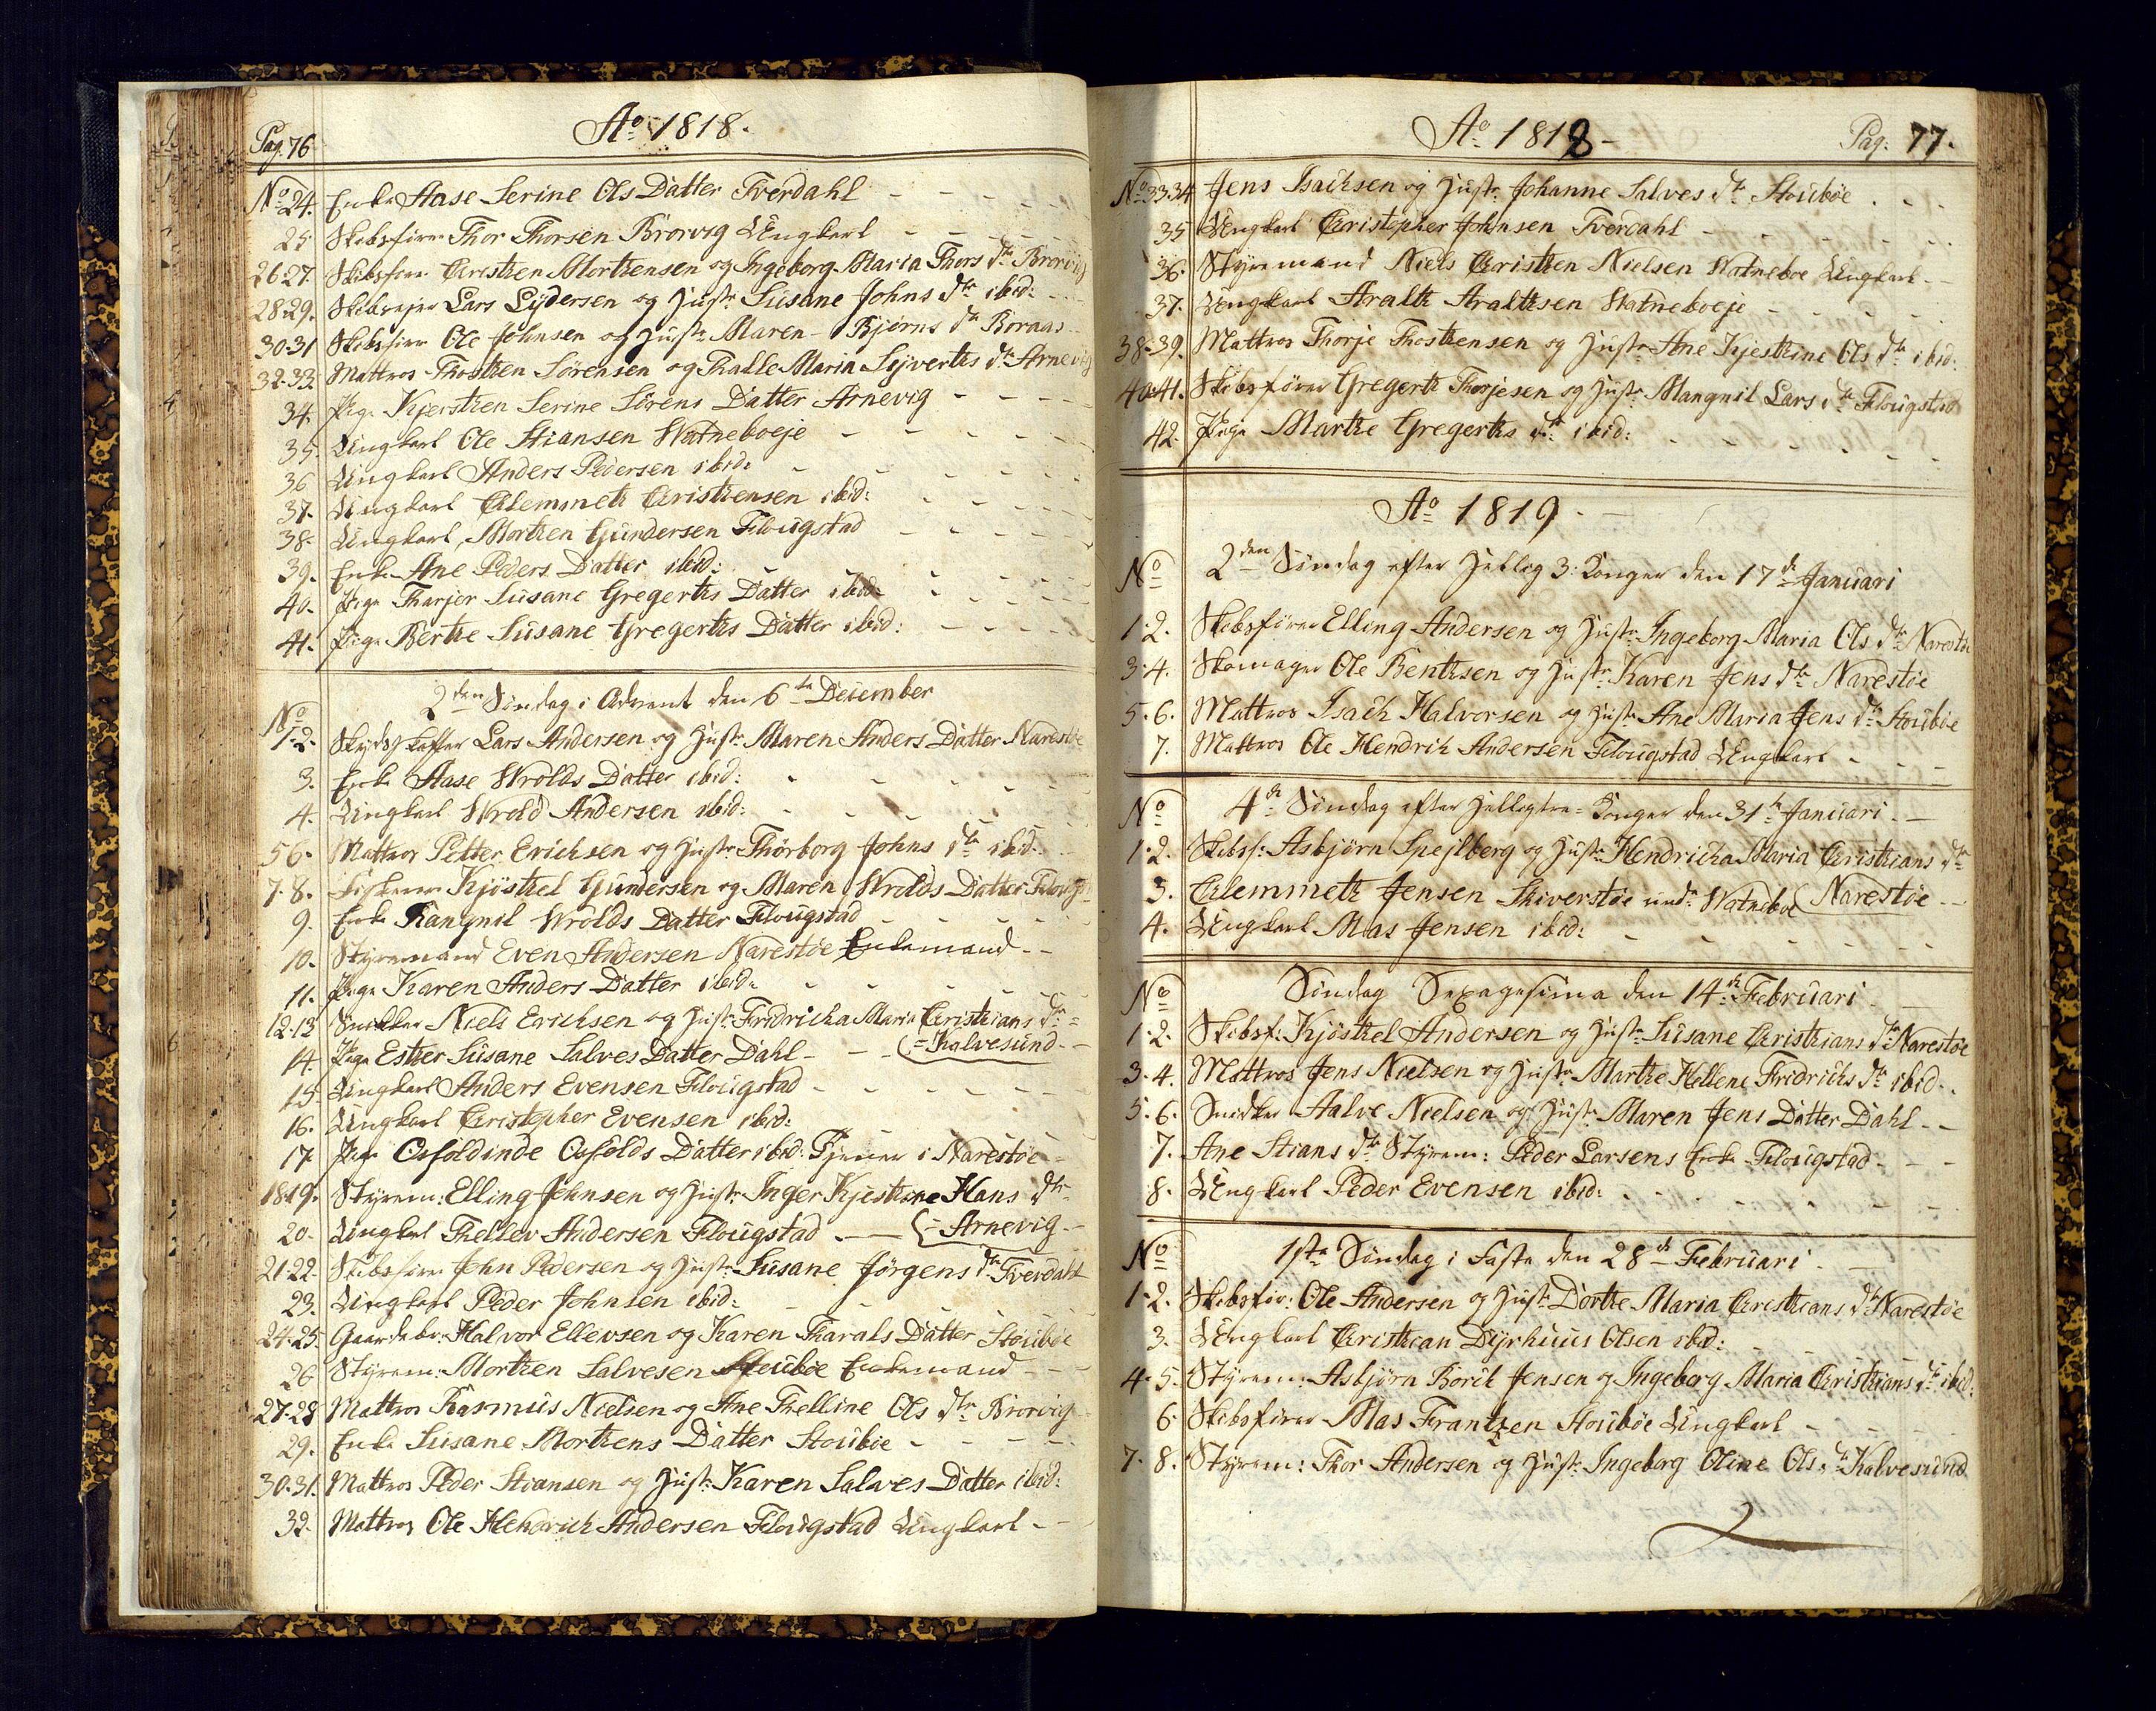 Pag. 76
Ao 1818.
No 24. Enke Aase Serine Ols Datter Tverdahl
25 Skibsfører Thor Thorsen Brorvig Ungkarl
26.27. Skibsfører Christen Mortensen og Ingeborg Maria Thors dtr Brorvig
28.29. Skibsejer Lars Lydersen og Hustr: Susane Johns dtr ibid:
30.31 Skibsfører Ole Johnsen og Hustr: Maren Bjørns dtr Boraas
32.33. Mattros Thosten Sørensen og Thalle Maria Syverts dtr Arnevig
34. Pige Kjersten Serine Sørens Datter Arnevig
35. Ungkarl Ole Stiansen Watneboeje
36 Ungkarl Anders Pedersen ibid:
37. Ungkarl Clemmeth Christensen ibid:
38. Ungkarl, Morten Gundersen Flougstad
39. Enke Ane Peders Datter ibid:
40. Pige Tharjer Susane Gregerts Datter ibid:
41. Pige Berthe Susane Gregerts Datter ibid:
2den Søndag i Advent den 6te December
No
1.2. Skydsskaffer Lars Andersen og Hustr: Maren Anders Datter Narestøe
3. Enke Aase Wrolds Datter ibid:
4. Ungkarl Wrold Andersen ibid:
5 6. Mattros Petter Erichsen og Hustr: Thørborg Johns dtr ibid:
7.8. Fiskeren Kjøstel Gundersen og Maren Wrolds Datter Flougs
9. Enke Rangnil Wrolds Datter Flougstad
10. Styremand Even Andersen Narestøe Enkemand
11. Pige Karen Anders Datter ibid:
12.13 Snikker Niels Erichsen og Hustr: Fridricha Maria Christians dtr =
14. Pige Esther Susane Salves Datter Dahl (= Kalvesund
15 Ungkarl Anders Evensen Flougstad
16. Ungkarl Christopher Evensen ibid:
17 Pige Osfoldinde Osfolds Datter ibid: Tjener i Narestøe
18.19. Styrem: Elling Johnsen og Hustr: Inger Kjestine Hans dtr
20. Ungkarl Thellev Andersen Flougstad (= Arnevig
21.22. Skibsfører John Pedersen og Hustr: Susane Jørgens dtr Tverdahl
23. Ungkarl Peder Johnsen ibid:
24.25. Gaardebr: Halvor Ellevsen og Karen Tharals Datter Stoubøe
26 Styrem: Morthen Salvesen Stoubøe Enkemand
27.28 Mattros Rasmus Nielsen og Ane Thelline Ols dtr Brorvig
29. Enke Susane Morthens Datter Stoubøe
30.31. Mattros Peder Stiansen og Hustr: Karen Salves Datter ibid:
32. Mattros Ole Hendrich Andersen Flougstad Ungkarl
Ao 1818 Pag: 77.
No 33.34 Jens Isachsen og Hustr: Johanne Salves dtr Stoubøe
35 Ungkarl Christopher Johnsen Tverdahl
36. Styremand Niels Christen Nielsen Watneboe Ungkarl
37. Ungkarl Aralth Aralthsen Watneboeje
38.39. Mattros Thorje Thostensen og Hustr: Ane Kjestine Ols dtr ibid:
40.41. Skibsfører Gregerth Thorjesen og Hustr: Mangnil Lars dtr Flougstad
42. Pige Marthe Gregerths dtr: ibid:
Ao 1819.
No 2den Søndag efter Hellig 3: Konger den 17de Januari
1.2. Skibsfører Elling Andersen og Hustr: Ingeborg Maria Ols dtr Narestøe
3.4. Skomager Ole Benthsen og Hustr: Karen Jens dtr Narestøe
5.6. Mattros Isach Halvorsen og Hustr: Ane Maria Jens dtr Stoubøe
7. Mattros Ole Hendrik Andersen Flougstad Ungkarl
No 4de Søndag efter Helligtre= Konger den 31te Januari
1.2. Skibsf: Asbjørn Spejlberg og Hustr: Hendricha Maria Christians dtr
3. Clemmeth Jensen Skiverstøe und: Watneboe (Narestøe
4. Ungkarl Mas Jensen ibid:
No Søndag Sexagesima den 14de Februari
1.2. Skibsf: Kjøstel Andersen og Hustr: Susane Christians dtr Narestøe
3.4. Mattros Jens Nielsen og Hustr: Marthe Hellene Fridrichs dtr ibid.
5.6. Snidker Aalve Nielsen og Hustr: Maren Jens Datter Dahl
7. Ane Stians dtr Styrem: Peder Larsens Enke Flougstad
8. Ungkarl Peder Evensen ibid:
No 1ste Søndag i Faste den 28de Februari
1.2. Skibsfør: Ole Andersen og Hustr: Dorthe Maria Christians dtr Narestøe
3. Ungkarl Christian Dyrhuus Olsen ibid:
4.5. Styrem: Asbjørn Borik Jensen og Ingeborg Maria Christians dtr ibid:
6 Skibsfører Mas Frantzen Stoubøe Ungkarl
7.8. Styrem: Thor Andersen og Hustr: Ingeborg Oline Ols dtr Kalvesund